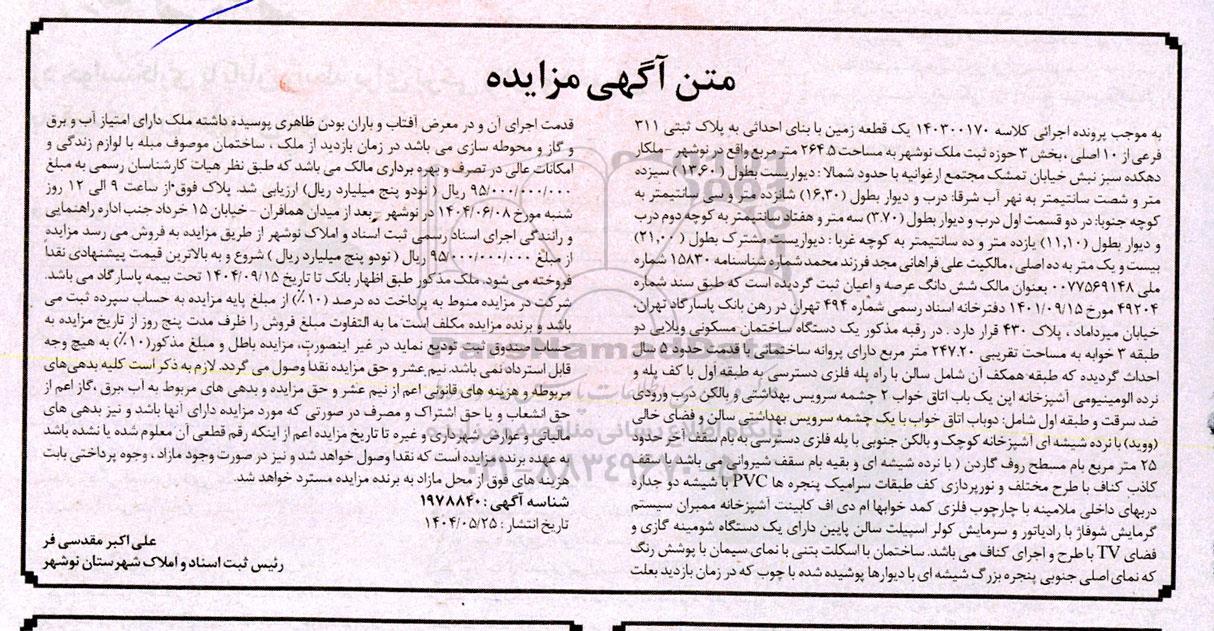 متن آگهی مزایده
به موجب پرونده اجرائی کلاسه ۱۴۰۳۰۰۱۷۰ یک قطعه زمین با بنای احداثی به پلاک ثبتی ۳۱۱
فرعی از ۱۰ اصلی ،بخش ۳ حوزه ثبت ملک نوشهر به مساحت ۲۶۴.۵ متر مربع واقع در نوشهر -ملکار
دهکده سبز نبش خیابان تمشک مجتمع ارغوانیه با حدود شمالا : دیواریست بطول (۱۳،۶۰) سیزده
متر و شصت سانتیمتر به نهر آب شرقا: درب و دیوار بطول (۱۶،۳۰) شانزده متر و سی سانتیمتر به
کوچه جنوبا: در دو قسمت اول درب و دیوار بطول (۳،۷۰) سه متر و هفتاد سانتیمتر به کوچه دوم درب
و دیوار بطول (۱۱،۱۰) یازده متر و ده سانتیمتر به کوچه غربا : دیواریست مشترک بطول (۲۱،۰۰)
بیست و یک متر به ده اصلی ، مالکیت علی فراهانی مجد فرزند محمد شماره شناسنامه ۱۵۸۳۰ شماره
ملی ۰۰۷۷۵۶۹۱۴۸ بعنوان مالک شش دانگ عرصه و اعیان ثبت گردیده است که طبق سند شماره
۴۹۲۰۴ مورخ ۱۴۰۱/۰۹/۱۵ دفترخانه اسناد رسمی شماره ۴۹۴ تهران در رهن بانک پاسارگاد تهران،
خیابان میرداماد ، پلاک ۴۳۰ قرار دارد . در رقبه مذکور یک دستگاه ساختمان مسکونی ویلایی دو
طبقه ۳ خوابه به مساحت تقریبی ۲۴۷.۲۰ متر مربع دارای پروانه ساختمانی با قدمت حدود ۵ سال
احداث گردیده که طبقه همکف آن شامل سالن با راه پله فلزی دسترسی به طبقه اول با کف پله و
نرده الومینیومی آشپزخانه اپن یک باب اتاق خواب ۲ چشمه سرویس بهداشتی و بالکن درب ورودی
ضد سرقت و طبقه اول شامل: دوباب اتاق خواب با یک چشمه سرویس بهداشتی سالن و فضای خالی
(ووید) با نرده شیشه ای آشپزخانه کوچک و بالکن جنوبی با پله فلزی دسترسی به بام سقف آخر حدود
۲۵ متر مربع بام مسطح روف گاردن ( با نرده شیشه ای و بقیه بام سقف شیروانی می باشد با سقف
کاذب کناف با طرح مختلف و نورپردازی کف طبقات سرامیک پنجره ها PVC با شیشه دو جداره
دربهای داخلی ملامینه با چارچوب فلزی کمد خوابها ام دی اف کابینت آشپزخانه ممبران سیستم
گرمایش شوفاژ با رادیاتور و سرمایش کولر اسپیلت سالن پایین دارای یک دستگاه شومینه گازی و
فضای TV با طرح و اجرای کناف می باشد. ساختمان با اسکلت بتنی با نمای سیمان با پوشش رنگ
که نمای اصلی جنوبی پنجره بزرگ شیشه ای با دیوارها پوشیده شده با چوب که در زمان بازدید بعلت
قدمت اجرای آن و در معرض آفتاب و باران بودن ظاهری پوسیده داشته ملک دارای امتیاز آب و برق
و گاز و محوطه سازی می باشد در زمان بازدید از ملک ، ساختمان موصوف مبله با لوازم زندگی و
امکانات عالی در تصرف و بهره برداری مالک می باشد که طبق نظر هیات کارشناسان رسمی به مبلغ
۹۵/۰۰۰/۰۰۰/۰۰۰ ریال ( نودو پنج میلیارد ریال) ارزیابی شد. پلاک فوق از ساعت ۹ الی ۱۲ روز
شنبه مورخ ۱۴۰۴/۰۶/۰۸ در نوشهر – بعد از میدان همافران - خیابان ۱۵ خرداد جنب اداره راهنمایی
و رانندگی اجرای اسناد رسمی ثبت اسناد و املاک نوشهر از طریق مزایده به فروش می رسد مزایده
از مبلغ ۹۵/۰۰۰/۰۰۰/۰۰۰ ریال ( نودو پنج میلیارد ریال ) شروع و به بالاترین قیمت پیشنهادی نقداً
فروخته می شود. ملک مذکور طبق اظهار بانک تا تاریخ ۱۴۰۴/۰۹/۱۵ تحت بیمه پاسارگاد می باشد.
شرکت در مزایده منوط به پرداخت ده درصد (۱۰٪) از مبلغ پایه مزایده به حساب سپرده ثبت می
باشد و برنده مزایده مکلف است ما به التفاوت مبلغ فروش را ظرف مدت پنج روز از تاریخ مزایده به
حساب صندوق ثبت تودیع نماید در غیر اینصورت، مزایده باطل و مبلغ مذکور(۱۰٪) به هیچ وجه
قابل استرداد نمی باشد. نیم عشر و حق مزایده نقدا وصول می گردد. لازم به ذکر است کلیه بدهی‌های
مربوطه و هزینه های قانونی اعم از نیم عشر و حق مزایده و بدهی های مربوط به آب ،برق ،گاز اعم از
حق انشعاب و یا حق اشتراک و مصرف در صورتی که مورد مزایده دارای آنها باشد و نیز بدهی های
مالیاتی و عوارض شهرداری و غیره تا تاریخ مزایده اعم از اینکه رقم قطعی آن معلوم شده یا نشده باشد
به عهده برنده مزایده است که نقدا وصول خواهد شد و نیز در صورت وجود مازاد ، وجوه پرداختی بابت
هزینه های فوق از محل مازاد به برنده مزایده مسترد خواهد شد.
شناسه آگهی : ۱۹۷۸۸۴۰
تاریخ انتشار : ۱۴۰۴/۰۵/۲۵
علی اکبر مقدسی فر
رئیس ثبت اسناد و املاک شهرستان نوشهر
ParsNamadData
پایگاه اطلاع رسانی مناقصه و مزایده
۰۲۱-۸۸۳۴۹۶۷۰